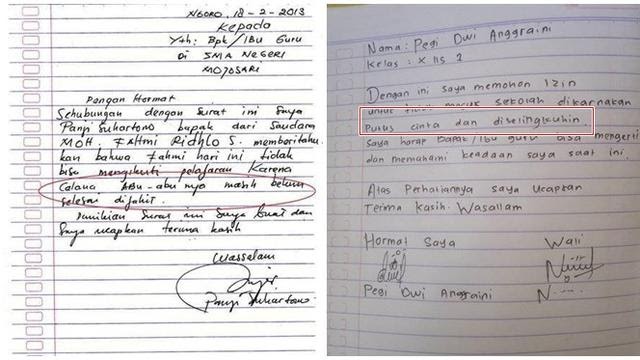 NGORO, 18-2-2013
Kepada
Yth: Bpk/Ibu Guru
Di SMA NEGERI
MOJOSARI
Dengan Hormat
Sehubungan dengan surat ini saya
Panji Suhartono bapak dari saudara
MOH. FAHMI RIDHLO S. memberitahu
kan bahwa Fahmi hari ini tidak
bisa mengikuti pelajaran Karena
Celana Abu-abu nya masih belum
selesai dijahit.
Demikian surat ini saya buat dan
saya ucapkan terima kasih
Wassalam
Panji Suhartono
Nama: Pegi Dwi Anggraini
Kelas: X IIS 2
Dengan ini saya memohon Izin
untuk tidak masuk sekolah dikarnakan
Putus cinta dan diselingkuhin.
saya harap Bapak/Ibu guru bisa mengerti
dan memahami keadaan saya saat ini.
Atas Perhatiannya saya Ucapkan
Terima Kasih. Wasallam
Hormat Saya Wali
Pegi Dwi Anggraini N....